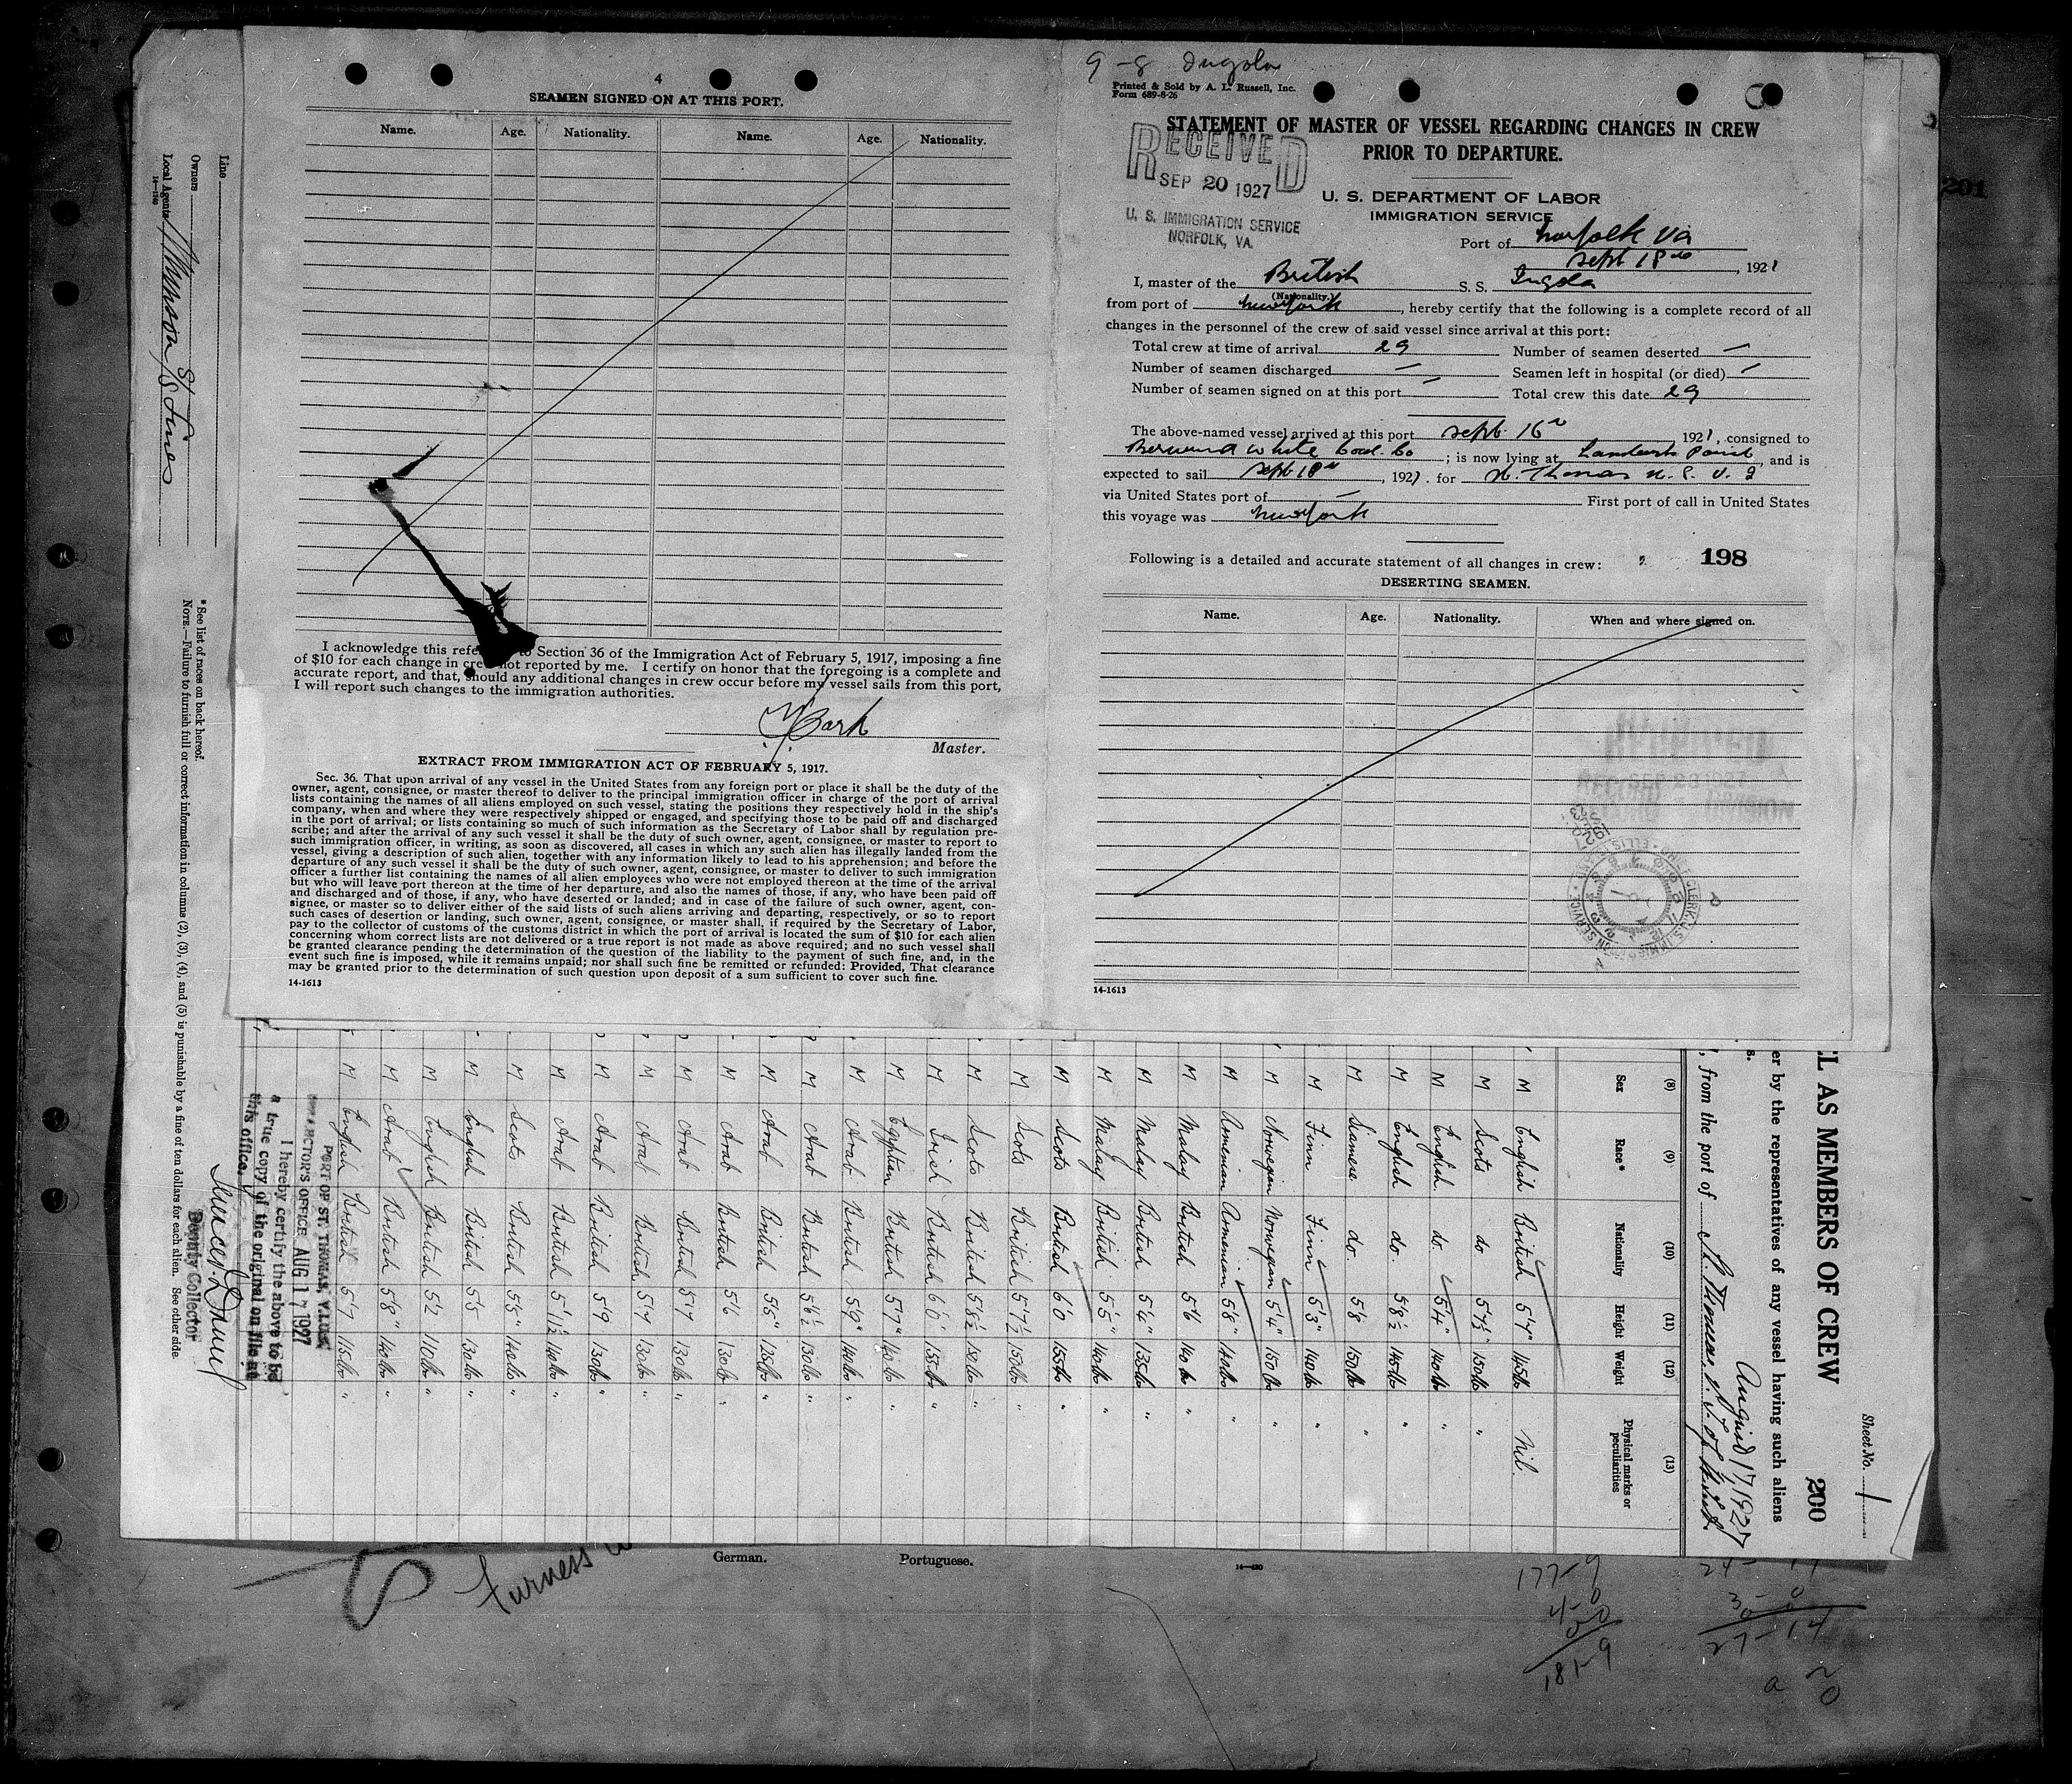 4
SEAMEN SIGNED ON AT THIS PORT.
Name. Age. Nationality. Name. Age. Nationality.
I acknowledge this Section 36 of the Immigration Act of February 5, 1917, imposing a fine
of $10 for each change in not reported by me. I certify on honor that the foregoing is a complete and
accurate report, and that, should any additional changes in crew occur before my vessel sails from this port,
I will report such changes to the immigration authorities.
Master.
EXTRACT FROM IMMIGRATION ACT OF FEBRUARY 5, 1917.
Sec. 36. That upon arrival of any vessel in the United States from any foreign port or place it shall be the duty of the
owner, agent, consignee, or master thereof to deliver to the principal immigration officer in charge of the port of arrival
lists containing the names of all aliens employed on such vessel, stating the positions they respectively hold in the ship's
company, when and where they were respectively shipped or engaged, and specifying those to be paid off and discharged
in the port of arrival; or lists containing so much of such information as the Secretary of Labor shall by regulation pre-
scribe; and after the arrival of any such vessel it shall be the duty of such owner, agent, consignee, or master to report to
such immigration officer, in writing, as soon as discovered, all cases in which any such alien has illegally landed from the
vessel, giving a description of such alien, together with any information likely to lead to his apprehension; and before the
departure of any such vessel it shall be the duty of such owner, agent, consignee, or master to deliver to such immigration
officer a further list containing the names of all alien employees who were not employed thereon at the time of the arrival
but who will leave port thereon at the time of her departure, and also the names of those, if any, who have been paid off
and discharged and of those, if any, who have deserted or landed; and in case of the failure of such owner, agent, con-
signee, or master so to deliver either of the said lists of such aliens arriving and departing, respectively, or so to report
such cases of desertion or landing, such owner, agent, consignee, or master shall, if required by the Secretary of Labor,
pay to the collector of customs of the customs district in which the port of arrival is located the sum of $10 for each alien
concerning whom correct lists are not delivered or a true report is not made as above required; and no such vessel shall
be granted clearance pending the determination of the question of the liability to the payment of such fine, and, in the
event such fine is imposed, while it remains unpaid; nor shall such fine be remitted or refunded: Provided, That clearance
may be granted prior to the determination of such question upon deposit of a sum sufficient to cover such fine.
14-1613
9-8 Ingola
Printed & Sold by A. L. Russell, Inc.
Form 689-8-26
STATEMENT OF MASTER OF VESSEL REGARDING CHANGES IN CREW
PRIOR TO DEPARTURE.
RECEIVED
SEP 20 1927
U. S. IMMIGRATION SERVICE
NORFOLK, VA.
U. S. DEPARTMENT OF LABOR
IMMIGRATION SERVICE
Port of Norfolk Va
Sept 18th, 1927
I, master of the British S. S. Ingola
(Nationality.)
from port of New York, hereby certify that the following is a complete record of all
changes in the personnel of the crew of said vessel since arrival at this port:
Total crew at time of arrival 29 Number of seamen deserted —
Number of seamen discharged — Seamen left in hospital (or died) —
Number of seamen signed on at this port — Total crew this date 29
The above-named vessel arrived at this port Sept 16th 1927, consigned to
Berwind White Coal Co; is now lying at Lamberts Point, and is
expected to sail Sept 18th, 1927. for St. Thomas
via United States port of — First port of call in United States
this voyage was New York
Following is a detailed and accurate statement of all changes in crew:
198
DESERTING SEAMEN.
Name. Age. Nationality. When and where signed on.
SEP 23 1927
14-1613
201
Line
Owners
Local Agents Munson S/S Lines
14-1280
* See list of races on back hereof.
NOTE.—Failure to furnish full or correct information in columns (2), (3), (4), and (5) is punishable by a fine of ten dollars for each alien. See other side.
Sheet No. 1
200
L AS MEMBERS OF CREW
er by the representatives of any vessel having such aliens
August 17, 1927
, from the port of St. Thomas
(8) (9) (10) (11) (12) (13)
Sex Race* Nationality Height Weight Physical marks or peculiarities
M English British 5'7" 145lb Nil.
M Scots do 5'7½ 150lb "
M English do. 5'4" 140lb "
M English do. 5'8½ 145lb "
M Siamese do. 5'8 150lb "
M Finn Finn 5'3" 140lb "
M Norwegian Norwegian 5'4" 150lb "
M Armenian Armenian 5'8" 140lb "
M Malay British 5'6 140lb "
M Malay British 5'4" 135lb "
M Malay British 5'5" 140lb "
M Scots British 6'0 155lb "
M Scots British 5'7½ 150lb "
M Scots British 5'8½ 150lb "
M Irish British 6'0" 155lb "
M Egyptian British 5'7" 140lb "
M Arab British 5'9" 140lb "
M Arab British 5'6½ 130lb "
M Arab British 5'8" 125lb "
M Arab British 5'6 130lb "
M Arab British 5'7 130lb "
M Arab British 5'7 130lb "
M Arab British 5'9 130lb "
M Arab British 5'11½ 140lb "
M Scots British 5'5" 140lb "
M English British 5'5 130lb "
M English British 5'2 110lb "
M Arab British 5'8" 140lb "
M English British 5'7 115lb "
PORT OF ST. THOMAS, V.I.U.S.
COLLECTOR'S OFFICE AUG 17 1927
I hereby certify the above to be
a true copy of the original on file at
this office.
Deputy Collector
Furness
German. Portuguese.
177-9
4-0
181-9
27-14